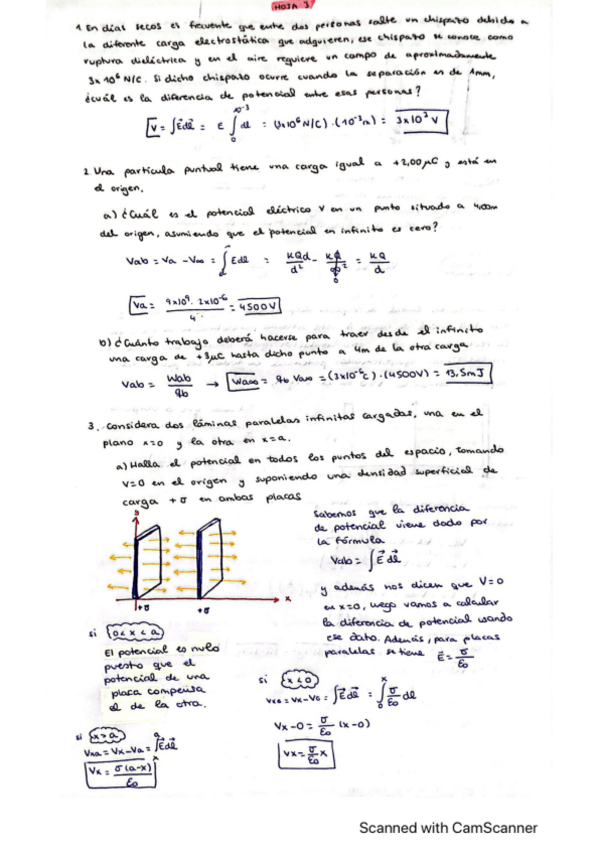 HOJA 3
1. En días secos es frecuente que entre dos personas salte un chispazo debido a
la diferente carga electrostática que adquieren, ese chispazo se conoce como
ruptura dieléctrica y en el aire requiere un campo de aproximadamente
3x10⁶ N/C. Si dicho chispazo ocurre cuando la separación es de 1mm,
¿cuál es la diferencia de potencial entre esas personas?
V = ∫Edl = E ∫₀^(10⁻³) dl = (3x10⁶ N/C) · (10⁻³m) = 3x10³ V
2. Una partícula puntual tiene una carga igual a +2,00 μC y está en
el origen.
a) ¿Cuál es el potencial eléctrico V en un punto situado a 4,00m
del origen, asumiendo que el potencial en infinito es cero?
Vab = Va - V∞ = ∫Edl = KQd/d² - KQ/∞² = KQ/d
0
Va = 9x10⁹ · 2x10⁻⁶/4 = 4500V
b) ¿Cuánto trabajo deberá hacerse para traer desde el infinito
una carga de +3μC hasta dicho punto a 4m de la otra carga
Vab = Wab/qb → Wa∞ = qb Va∞ = (3x10⁻⁶C) · (4500V) = 13,5mJ
3. Considera dos láminas paralelas infinitas cargadas, una en el
plano x=0 y la otra en x=a.
a) Halla el potencial en todos los puntos del espacio, tomando
V=0 en el origen y suponiendo una densidad superficial de
carga +σ en ambas placas
x
+σ +σ
Sabemos que la diferencia
de potencial viene dado por
la fórmula
Vab = ∫E⃗dl⃗
y además nos dicen que V=0
en x=0, luego vamos a calcular
la diferencia de potencial usando
ese dato. Además, para placas
paralelas se tiene E⃗ = σ/ε₀
si 0<x<a
El potencial es nulo
puesto que el
potencial de una
placa compensa
el de la otra.
si x<0
Vx0 = Vx-V0 = ∫E⃗dl⃗ = ∫₀^x σ/ε₀ dl
Vx-0 = σ/ε₀ (x-0)
Vx = σ/ε₀ x
si x>a
Vxa = Vx-Va = ∫ₓ^a E⃗dl⃗
Vx = σ(a-x)/ε₀
Scanned with CamScanner